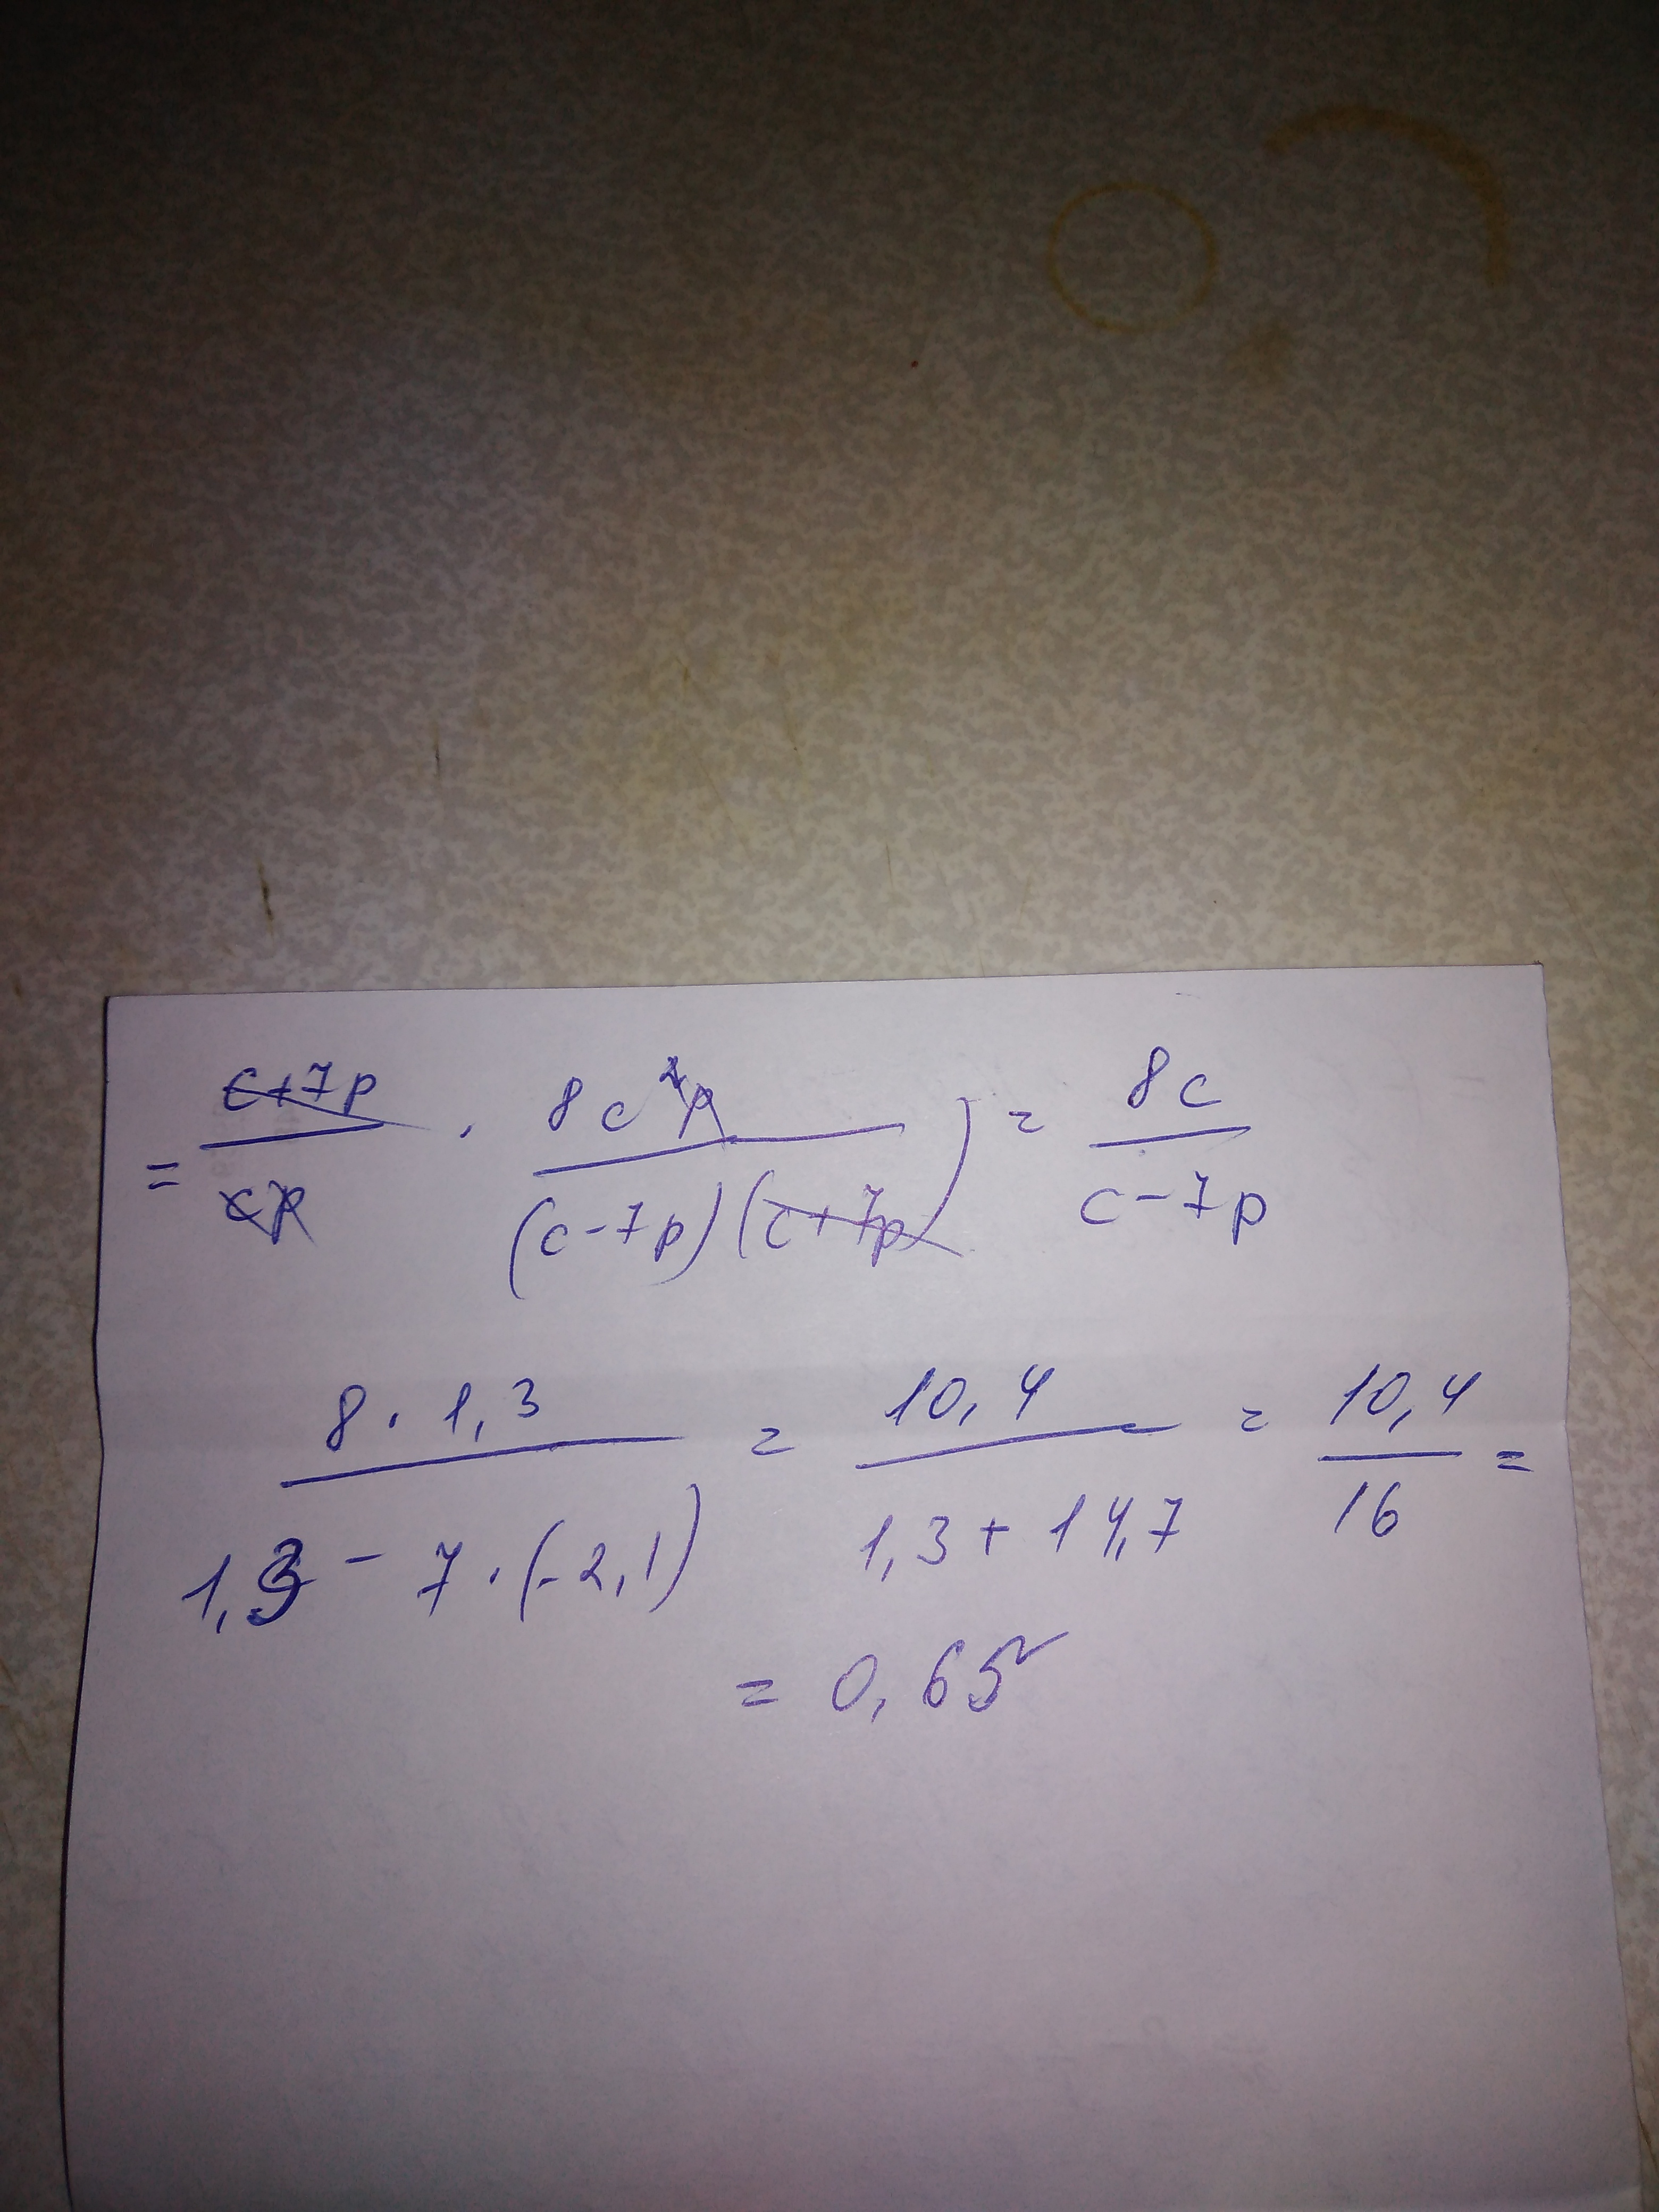 = c+7p / cp · 8c²p / (c-7p)(c+7p) = 8c / c-7p
8 · 1,3 / 1,3 - 7 · (-2,1) = 10,4 / 1,3 + 14,7 = 10,4 / 16 =
= 0,65